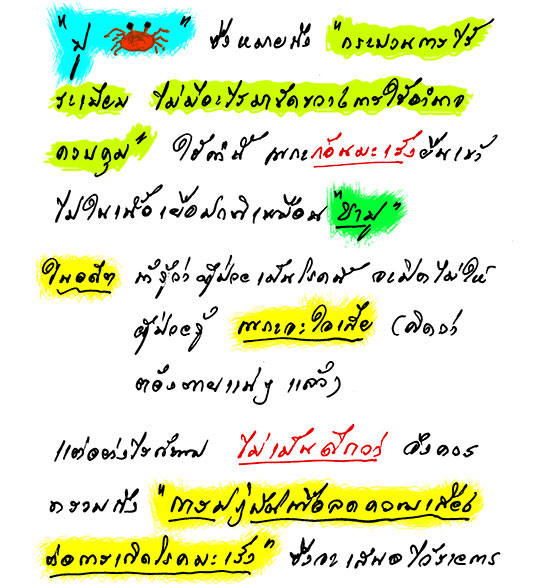 "ปู" ซึ่งหมายถึง "กระบวนการไร้
ระเบียบ ไม่มีอะไรมาขัดขวางการใช้อำนาจ
ควบคุม" ใช้คำนี้ เพราะก้อนมะเร็งยื่นเข้า
ไปในเนื้อเยื่อปกติเหมือน "ขาปู"
ในอดีต ถ้ารู้ว่าผู้ป่วยเป็นโรคนี้ จะปิดไม่ให้
ผู้ป่วยรู้ เพราะจะใจเสีย (คิดว่า
ต้องตายแน่ๆ แล้ว)
แต่อย่างไรก็ตาม ไม่เป็นดีกว่า จึงควร
ทราบถึง "การปฏิบัติเพื่อลดความเสี่ยง
ต่อการเกิดโรคมะเร็ง" ซึ่งจะเสนอไว้ราย